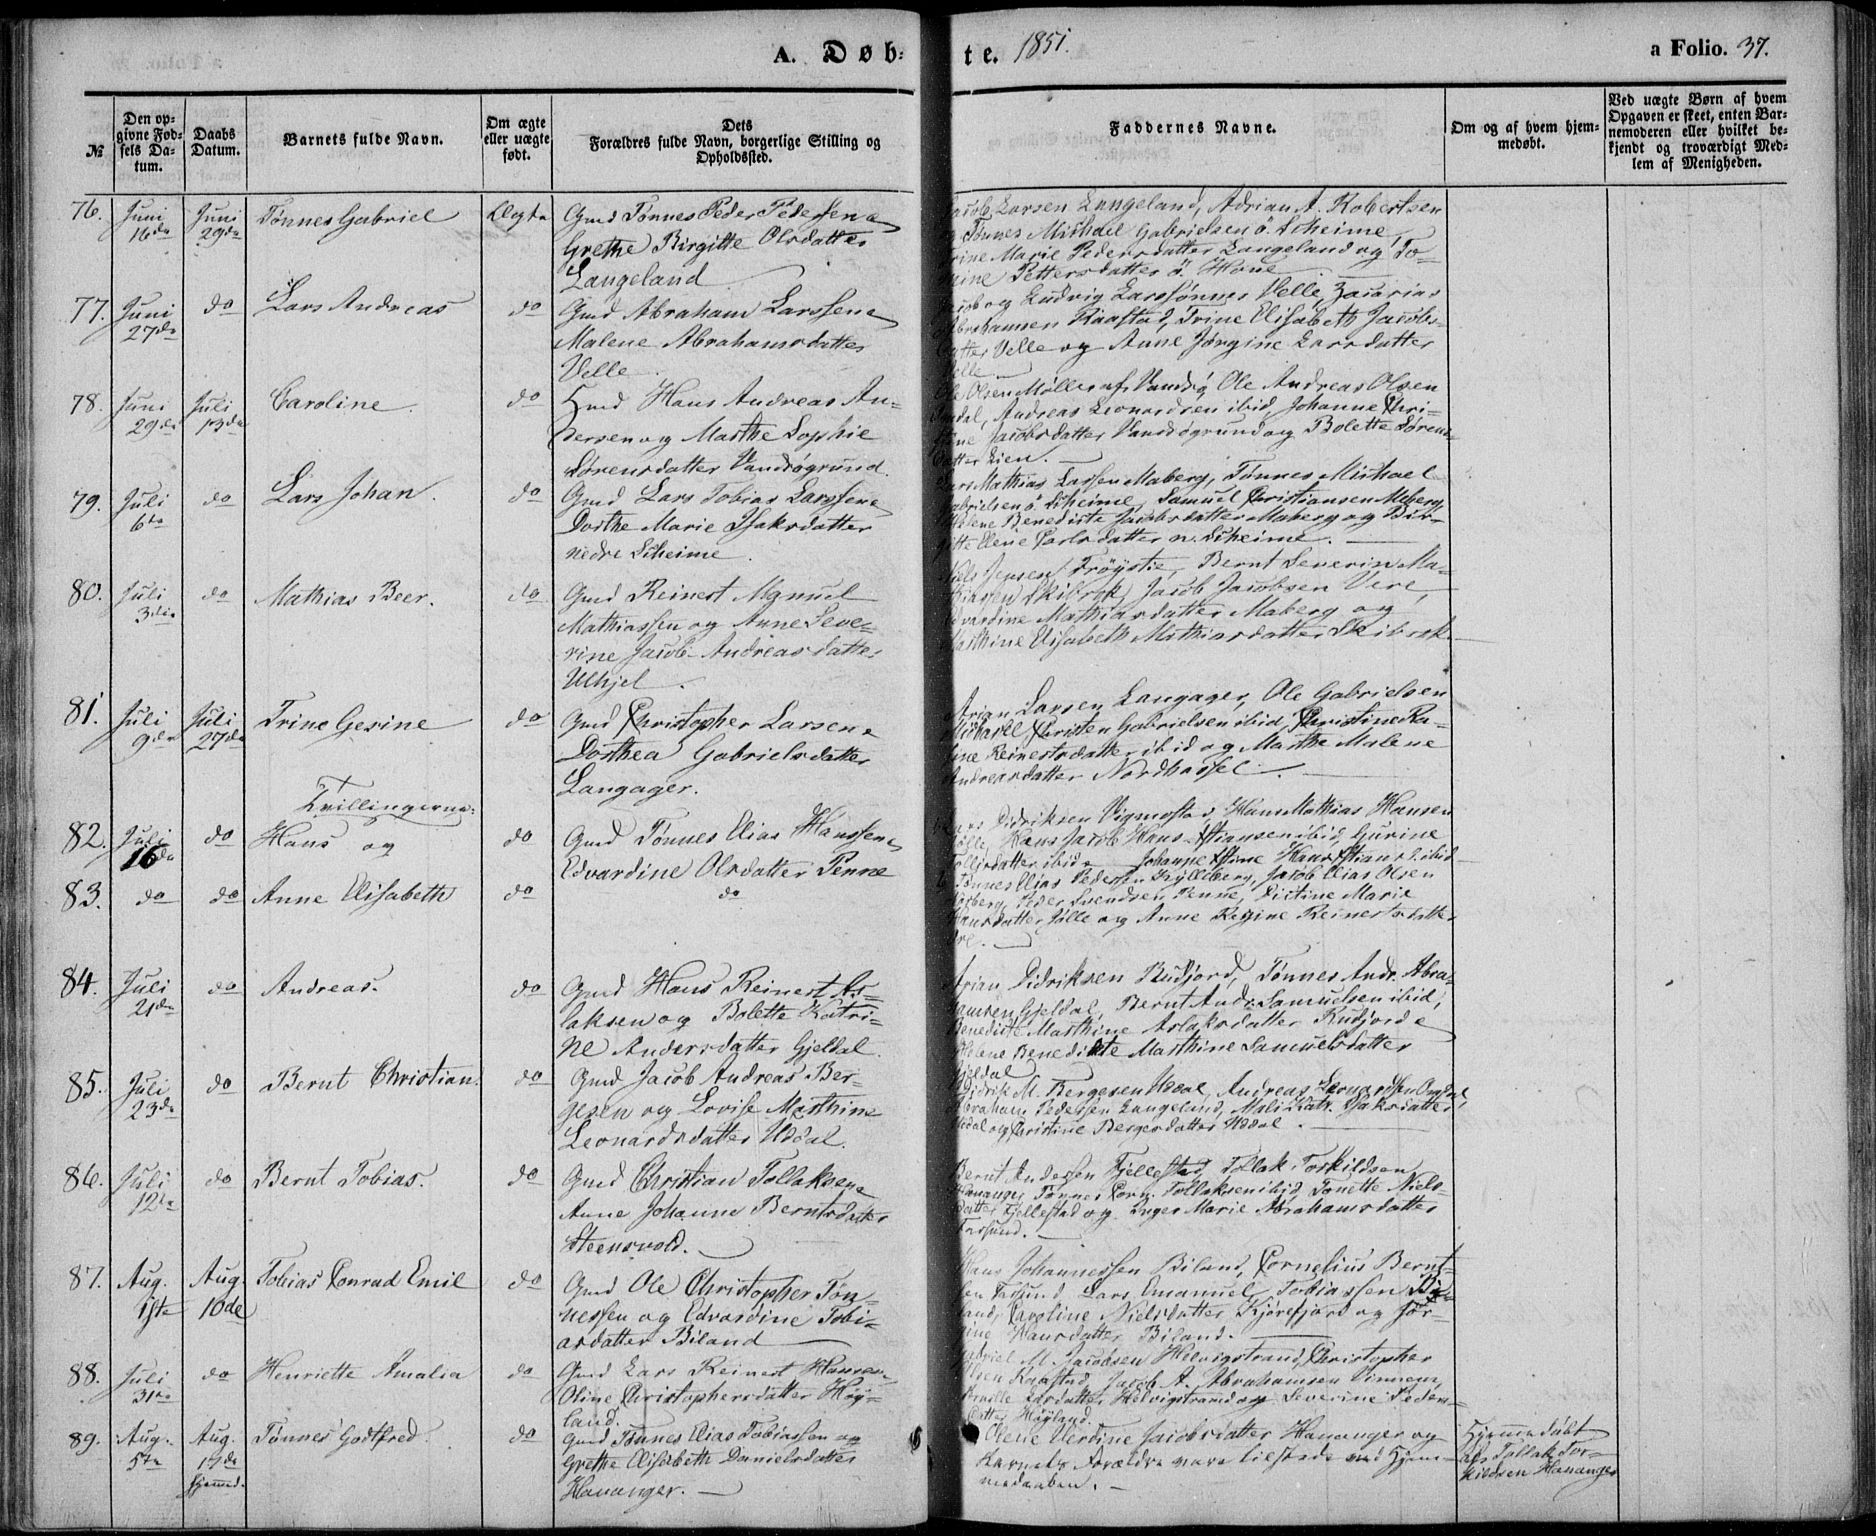 A. Døb-
te. 1851.
a Folio. 37.
№
Den op-
givne Fød-
sels Da-
tum.
Daabs
Datum.
Barnets fulde Navn.
Om ægte
eller uægte
født.
Dets
Forældres fulde Navn, borgerlige Stilling og
Opholdssted.
Faddernes Navne.
Om og af hvem hjem-
medøbt.
Ved uægte Børn af hvem
Opgaven er skeet, enten Bar-
nemoderen eller hvilket be-
kjendt og troværdigt Med-
lem af Menigheden.
76. Juni 16de Juni 29de Tønnes Gabriel Ægte Gmd Tønnes Peder Pedersen &
Grethe Birgitte Olsdatter
Langeland
Jacob Larsen Langeland, Adrian A. Robertsen
Tønnes Michael Gabrielsen ö. Skeime,
Trine Marie Pedersdatter Langeland og To-
mine Pettersdatter ö. Haue
77. Juni 27de do Lars Andreas do Gmd Abraham Larssen &
Malene Abrahamsdatter
Velle.
Jacob og Ludvig Larssønner Velle, Zacarias
Abrahamsen Raastad, Trine Elisabeth Jacobs-
datter Velle og Anne Jørgine Larsdatter
Velle
78. Juni 29de Juli 13de Caroline. do Hmd Hans Andreas An-
dersen og Marthe Sophie
Sørensdatter Vandsøgrund.
Ole Olsen Møller af Vandsö, Ole Andreas Olsen
Andreas Leonardsen ibid, Johanne Chri-
stine Jacobsdatter Vandsögrund og Bolette Sørens-
datter Lien.
79. Juli 6te do Lars Johan. do Gmd Lars Tobias Larssen &
Dorthe Marie Isaksdatter
nedre Skeime.
Lars Mathias Larssen Maberg, Tønnes Michael
Gabrielsen ö. Skeime, Samuel Christiansen Maberg,
Helene Benedicte Jacobsdatter Maberg og Bir-
gitte Elene Carlsdatter n. Skeime.
80. Juli 3die do Mathias Beer. do Gmd Reinert Manuel
Mathiassen og Anne Seve-
rine Jacob-Andreasdatter
Ulhjel.
Niels Jensen Frøystie, Bernt Severin Ma-
thiassen Skibrek, Jacob Jacobsen Vere,
Edvardine Mathiasdatter Maberg og
Marthine Elisabeth Mathiasdatter Skibrek
81. Juli 9de Juli 27de Trine Gesine do Gmd Christopher Larsen &
Dorthea Gabrielsdatter
Langager.
Arian Larsen Langager, Ole Gabrielsen
Christen Gabrielsen ibid, Christine Ra-
Reinertsdatter ibid og Marthe Malene
Andreasdatter Nordhassel.
Tvillingerne:
82. Juli 16de do Hans og do Gmd Tønnes Elias Hanssen &
Edvardine Olsdatter Penne
Didriksen Vigmostad, Hans Mathias Hansen
Jølle, Hans Jacob Hans-Stiansen ibid, Gurine
Tollisdatter ibid & Johanne Stine Hans Stiansd. ibid
83. do do Anne Elisabeth do do
Tønnes Elias Pedersen Kylleberg, Jacob Elias Olsen
Peder Svendsen Penne, Dictine Marie
Hansdatter Jølle og Anne Regine Reinertsdatter
84. Juli 21de do Andreas. do Gmd Hans Reinert As-
laksen og Bolette Katri-
ne Andersdatter Gjeldal.
Arian Didriksen Rudjord, Tønnes Andr. Abra-
hamsen Gjeldal, Bernt Andr. Samuelsen ibid,
Benedicte Marthine Aslaksdatter Rudjord &
Helene Benedikte Marthine Samuelsdatter
Gjeldal
85. Juli 23de do Bernt Christian. do Gmd Jacob Andreas Ber-
gesen og Lovise Marthine
Leonardsdatter Uddal.
Didrik M. Bergesen Uddal, Andreas Leonardsen Omdal,
Abraham Pedersen Langeland, Mali Katr. Isaksdatter
Uddal og Christine Bergesdatter Uddal.
86. Juli 12te do Bernt Tobias. do Gmd Christian Tollaksen &
Anne Johanne Berntsdatter
Steensvold.
Bernt Andersen Fjellestad, Tollak Torkildsen
Hananger, Tønnes Corn. Tollaksen ibid, Tonette Niels-
datter Fjellestad og Inger Marie Abrahamsdatter
Farsund.
87. Aug. 1ste Aug. 10de Tobias Conrad Emil do Gmd Ole Christopher Tøn-
nessen og Edvardine Tobi-
asdatter Biland
Hans Johannessen Biland, Cornelius Bernt-
sen Farsund, Lars Emanuel Tobiassen Bi-
land, Caroline Nielsdatter Kjørefjord og Jør-
gine Hansdatter Biland.
88. Juli 31te do Henriette Amalia do Gmd Lars Reinert Hansen &
Oline Christophersdatter Høy-
land.
Gabriel M. Jacobsen Helvigstrand, Christopher
Olsen Raastad, Jacob A. Abrahamsen Vinnem,
Larsdatter Helvigstrand og Severine Peders-
datter Høyland.
89. Aug. 5te Aug. 17de hjemmed. Tønnes Godtfred. do Gmd Tønnes Elias Tobiassen og
Grethe Elisabeth Danielsdatter
Hananger.
Olene Verdine Jacobsdatter Hananger og
Barnets Forældre vare tilstede ved Hjem-
medaaben.
Hjemmedøbt
af Tollak Tor-
kildsen Hananger